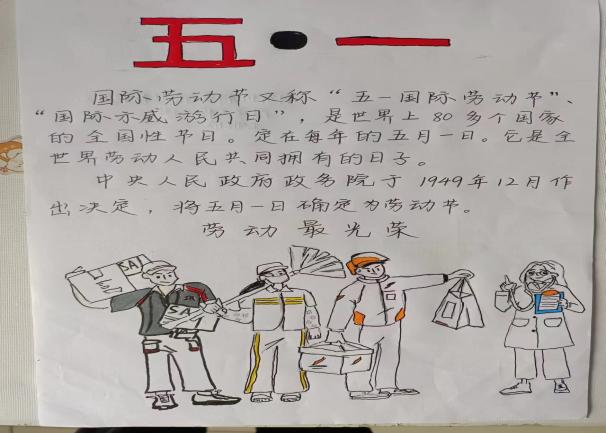 五·一
国际劳动节又称“五一国际劳动节”、
“国际示威游行日”，是世界上80多个国家
的全国性节日。定在每年的五月一日。它是全
世界劳动人民共同拥有的日子。
中央人民政府政务院于1949年12月作
出决定，将五月一日确定为劳动节。
劳动最光荣
SA
SA